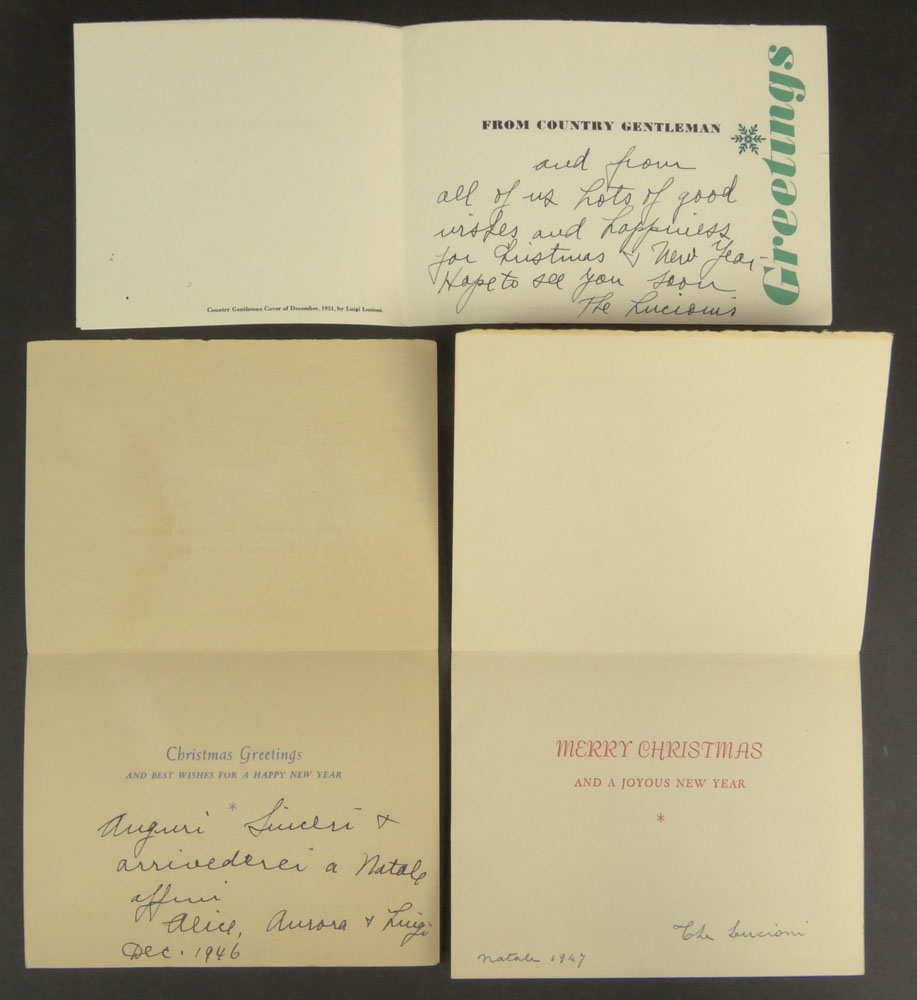 Greetings
FROM COUNTRY GENTLEMAN
and from
all of us lots of good
wishes and happiness
for Christmas & New Year-
Hope to see you soon
The Lucioni's
Country Gentleman Cover of December, 1951, by Luigi Lucioni.
Christmas Greetings
AND BEST WISHES FOR A HAPPY NEW YEAR
*
Auguri Sinceri &
arrivederci a Natale
affmi
Alice, Aurora & Luigi
Dec. 1946
MERRY CHRISTMAS
AND A JOYOUS NEW YEAR
*
The Lucioni
Natale 1947